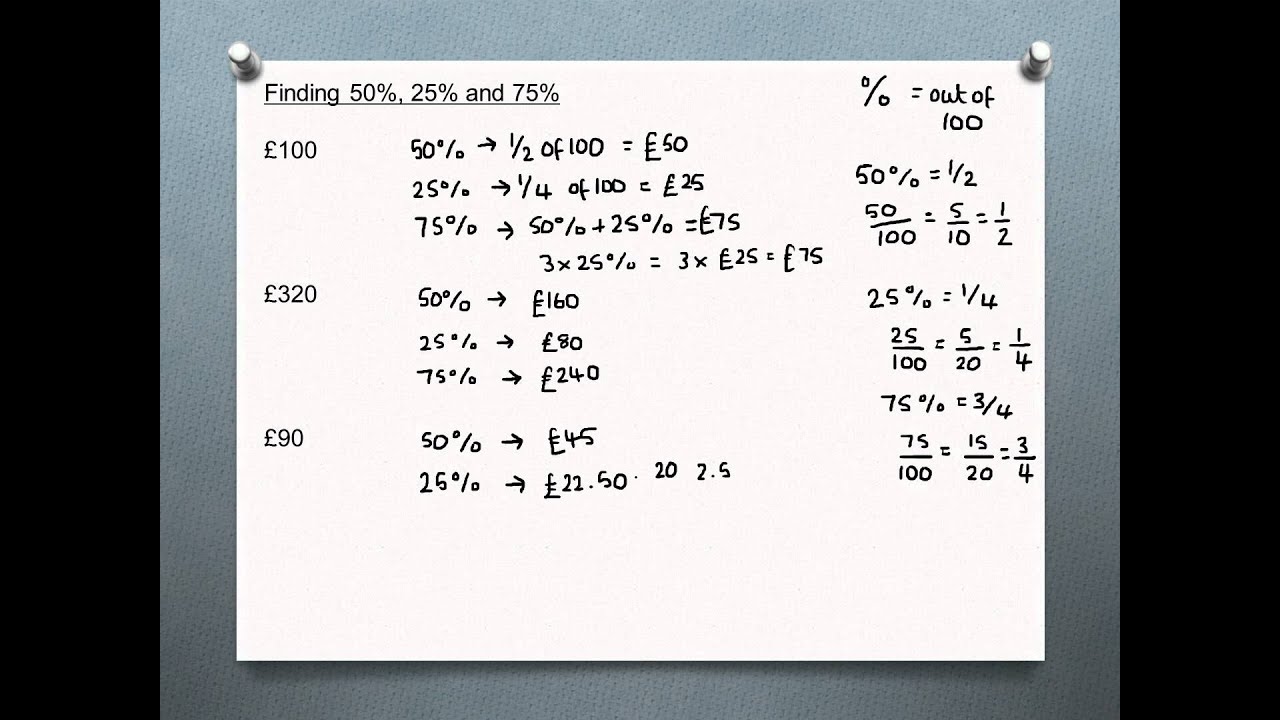 Finding 50%, 25% and 75%
£100
50% → 1/2 of 100 = £50
25% → 1/4 of 100 = £25
75% → 50% + 25% = £75
3 × 25% = 3 × £25 = £75
£320
50% → £160
25% → £80
75% → £240
£90
50% → £45
25% → £22.50 . 20 2.5
% = out of
100
50% = 1/2
50/100 = 5/10 = 1/2
25% = 1/4
25/100 = 5/20 = 1/4
75% = 3/4
75/100 = 15/20 = 3/4